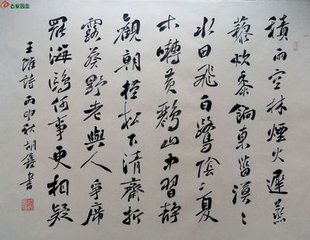 積雨空林煙火遲蒸
藜炊黍餉東菑漠〻
水田飛白鷺陰〻夏
木囀黃鸝山中習靜
觀朝槿松下清齋折
露葵野老與人爭席
罷海鷗何事更相疑
王維詩丙申秋胡書